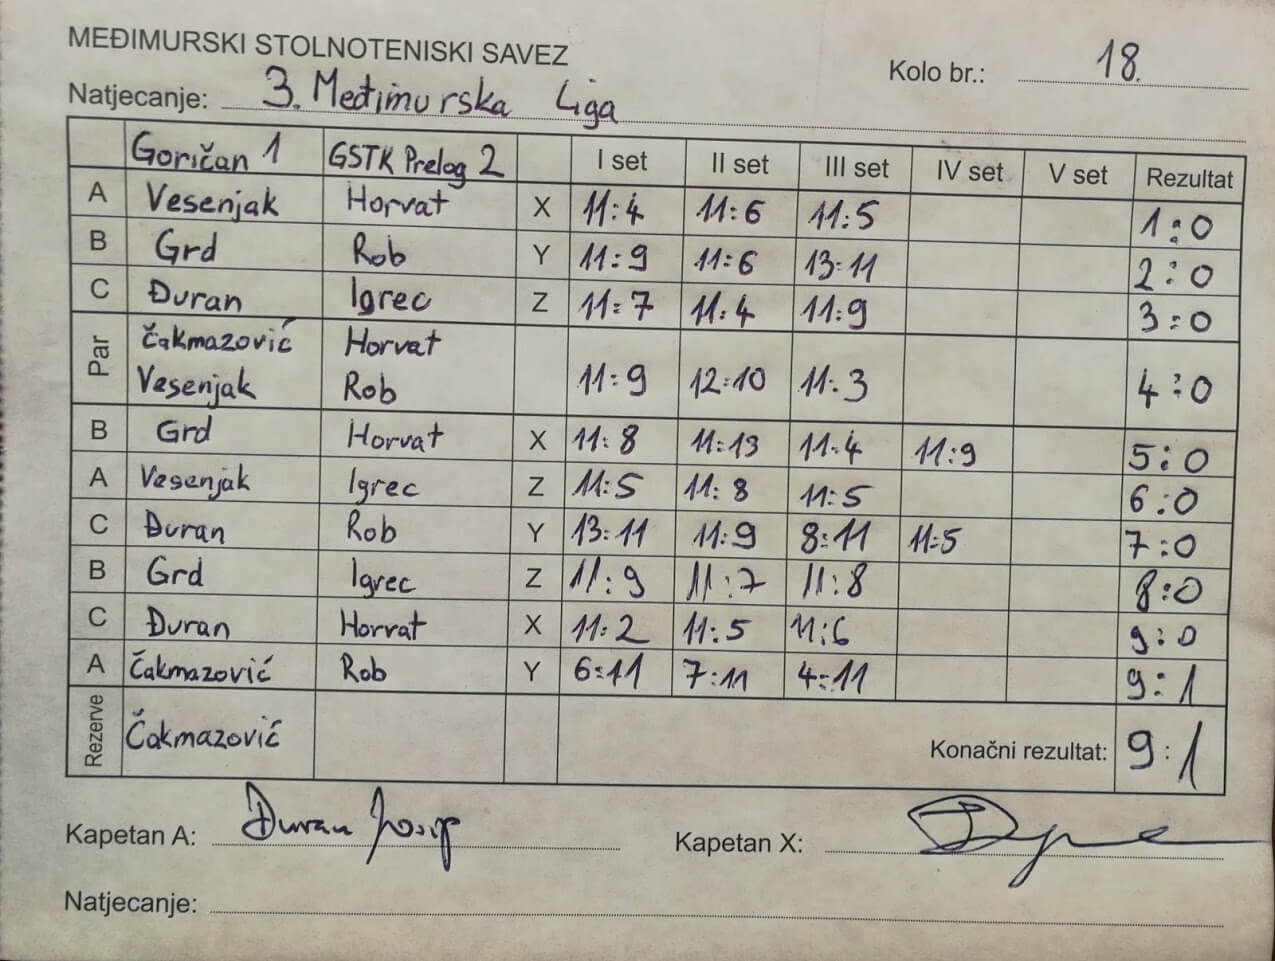 MEĐIMURSKI STOLNOTENISKI SAVEZ
Kolo br.: 18.
Natjecanje: 3. Međimurska Liga
Goričan 1 GSTK Prelog 2 I set II set III set IV set V set Rezultat
A Vesenjak Horvat X 11:4 11:6 11:5 1:0
B Grd Rob Y 11:9 11:6 13:11 2:0
C Đuran Igrec Z 11:7 11:4 11:9 3:0
Par Čakmazović Horvat
Vesenjak Rob 11:9 12:10 11:3 4:0
B Grd Horvat X 11:8 11:13 11:4 11:9 5:0
A Vesenjak Igrec Z 11:5 11:8 11:5 6:0
C Đuran Rob Y 13:11 11:9 8:11 11:5 7:0
B Grd Igrec Z 11:9 11:7 11:8 8:0
C Đuran Horvat X 11:2 11:5 11:6 9:0
A Čakmazović Rob Y 6:11 7:11 4:11 9:1
Rezerve Čakmazović Konačni rezultat: 9:1
Kapetan A: Đuran Josip Kapetan X:
Natjecanje: